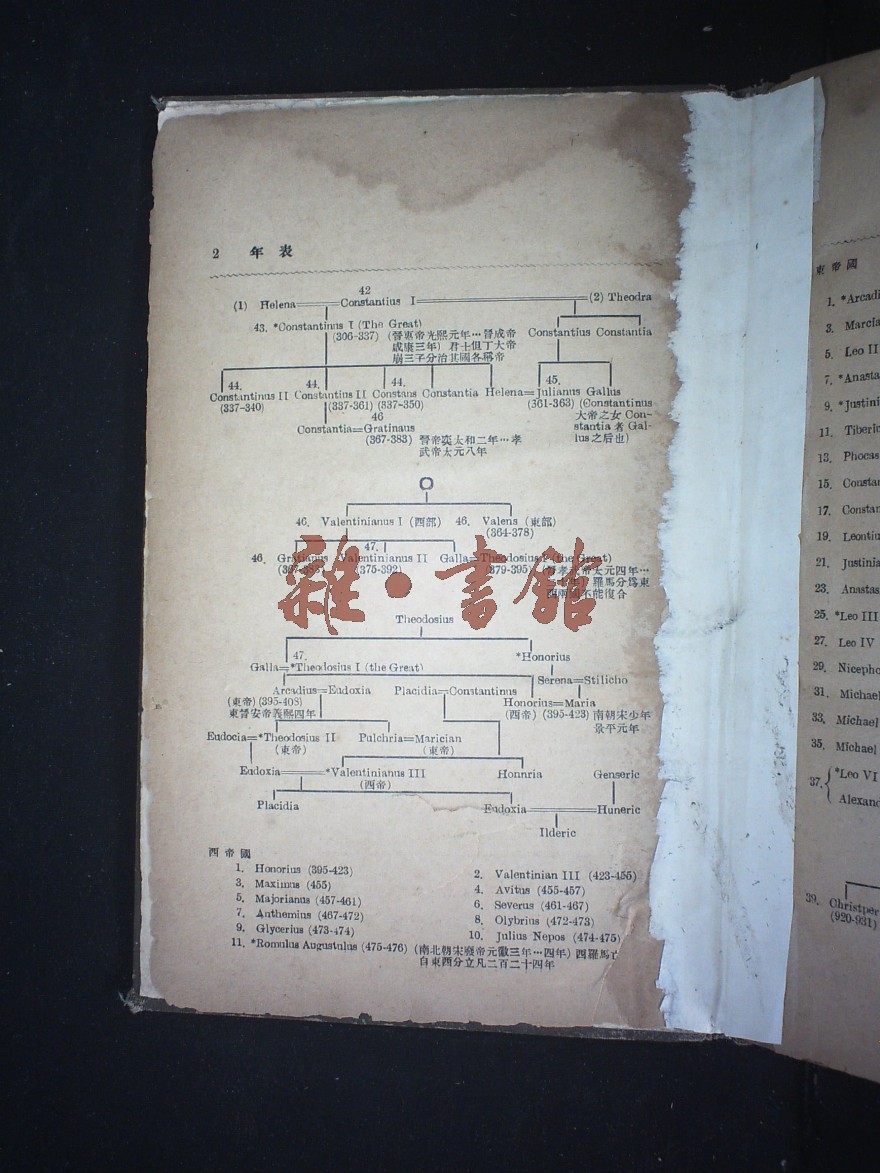 2 年 表
42
(1) Helena Constantius I (2) Theodra
43. *Constantinus I (The Great)
(306-337) (晉惠帝光熙元年…晉成帝
咸康三年) 君士但丁大帝
崩三子分治其國各稱帝
Constantius Constantia
44. 44. 44. 45.
Constantinus II Constantius II Constans Constantia Helena=Julianus Gallus
(337-340) (337-361) (337-350) (361-363) (Constantinus
大帝之女 Con-
stantia 者 Gal-
lus 之后也)
46
Constantia=Gratinaus
(367-383) 晉帝奕太和二年…孝
武帝太元八年
46. Valentinianus I (西部) 46. Valens (東部)
(364-378)
47.
46. Gratianus Valentinianus II Galla=Theodosius I (the Great)
(367-383) (375-392) (379-395) 帝太元四年…
羅馬分爲東
不能復合
Theodosius
47. *Honorius
Galla=*Theodosius I (the Great)
Serena=Stilicho
Arcadius=Eudoxia Placidia=Constantinus Honorius=Maria
(東帝) (395-408) (西帝) (395-423) 南朝宋少年
東晉安帝義熙四年 景平元年
Eudocia=*Theodosius II Pulchria=Marician
(東帝) (東帝)
Eudoxia *Valentinianus III Honnria Genseric
(西帝)
Placidia Eudoxia Huneric
Ilderic
西 帝 國
1. Honorius (395-423) 2. Valentinian III (423-455)
3. Maximus (455) 4. Avitus (455-457)
5. Majorianus (457-461) 6. Severus (461-467)
7. Anthemius (467-472) 8. Olybrius (472-473)
9. Glycerius (473-474) 10. Julius Nepos (474-475)
11. *Romulus Augustulus (475-476) (南北朝宋廢帝元徽三年…四年) 西羅馬亡
自東西分立凡二百二十四年
東 帝 國
1. *Arcadi
3. Marcia
5. Leo II
7. *Anasta
9. *Justini
11. Tiberio
13. Phocas
15. Constan
17. Constan
19. Leontiu
21. Justinia
23. Anastas
25. *Leo III
27. Leo IV
29. Nicepho
31. Michael
33. Michael
35. Michael
37. *Leo VI
Alexand
39. Christper
(920-931)
雜·書館